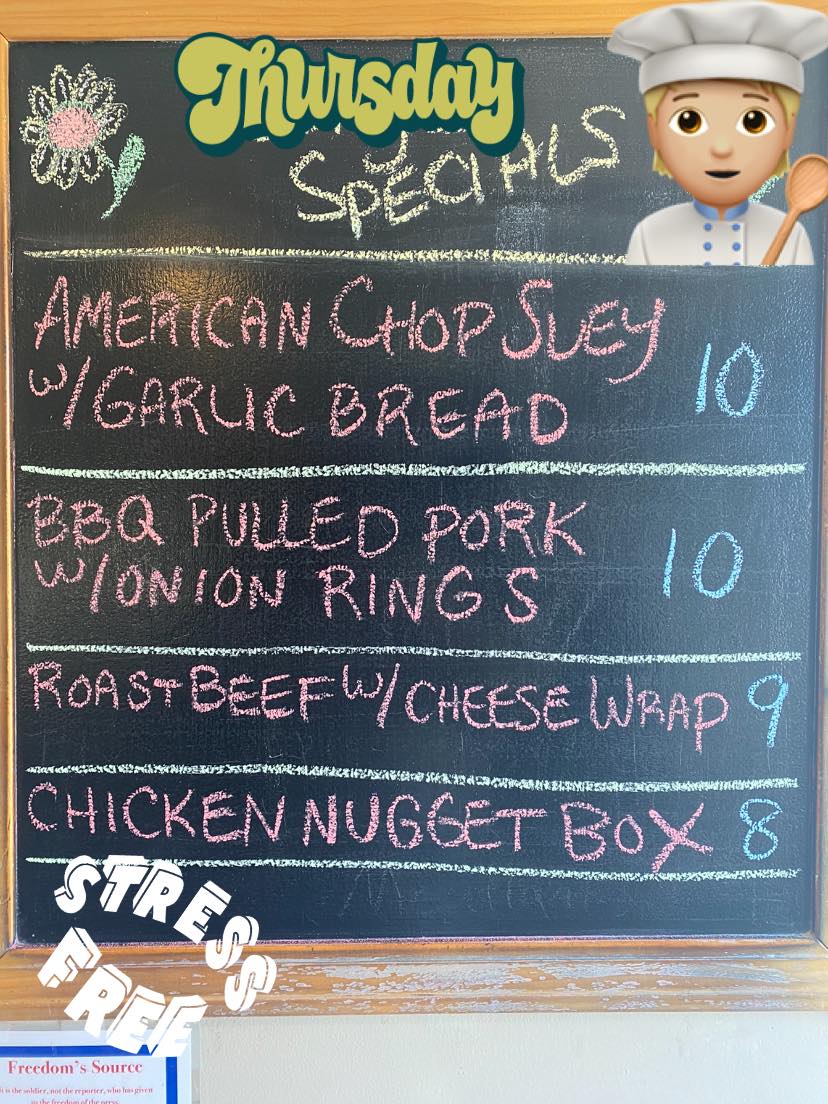 Thursday
SPECIALS
AMERICAN CHOP SUEY
w/GARLIC BREAD 10
BBQ PULLED PORK
w/ONION RINGS 10
ROAST BEEF w/CHEESE WRAP 9
CHICKEN NUGGET BOX 8
STRESS
FREE
Freedom's Source
It is the soldier, not the reporter, who has given
us the freedom of the press.